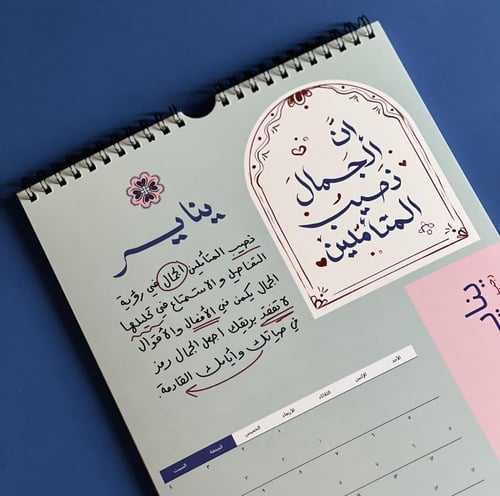 إنَّ
الجمالَ
نصيبُ
المتأملين
يناير
نصيب المتأملين الجمال في رؤية
التفاصيل والاستمتاع في
الجمال يكمن في الأفعال والأقوال
لا تفقد بريقك اجعل الجمال رمز
في حياتك وأيامك القادمة.
الأحد
الإثنين
الثلاثاء
الأربعاء
الخميس
الجمعة
السبت
يناير